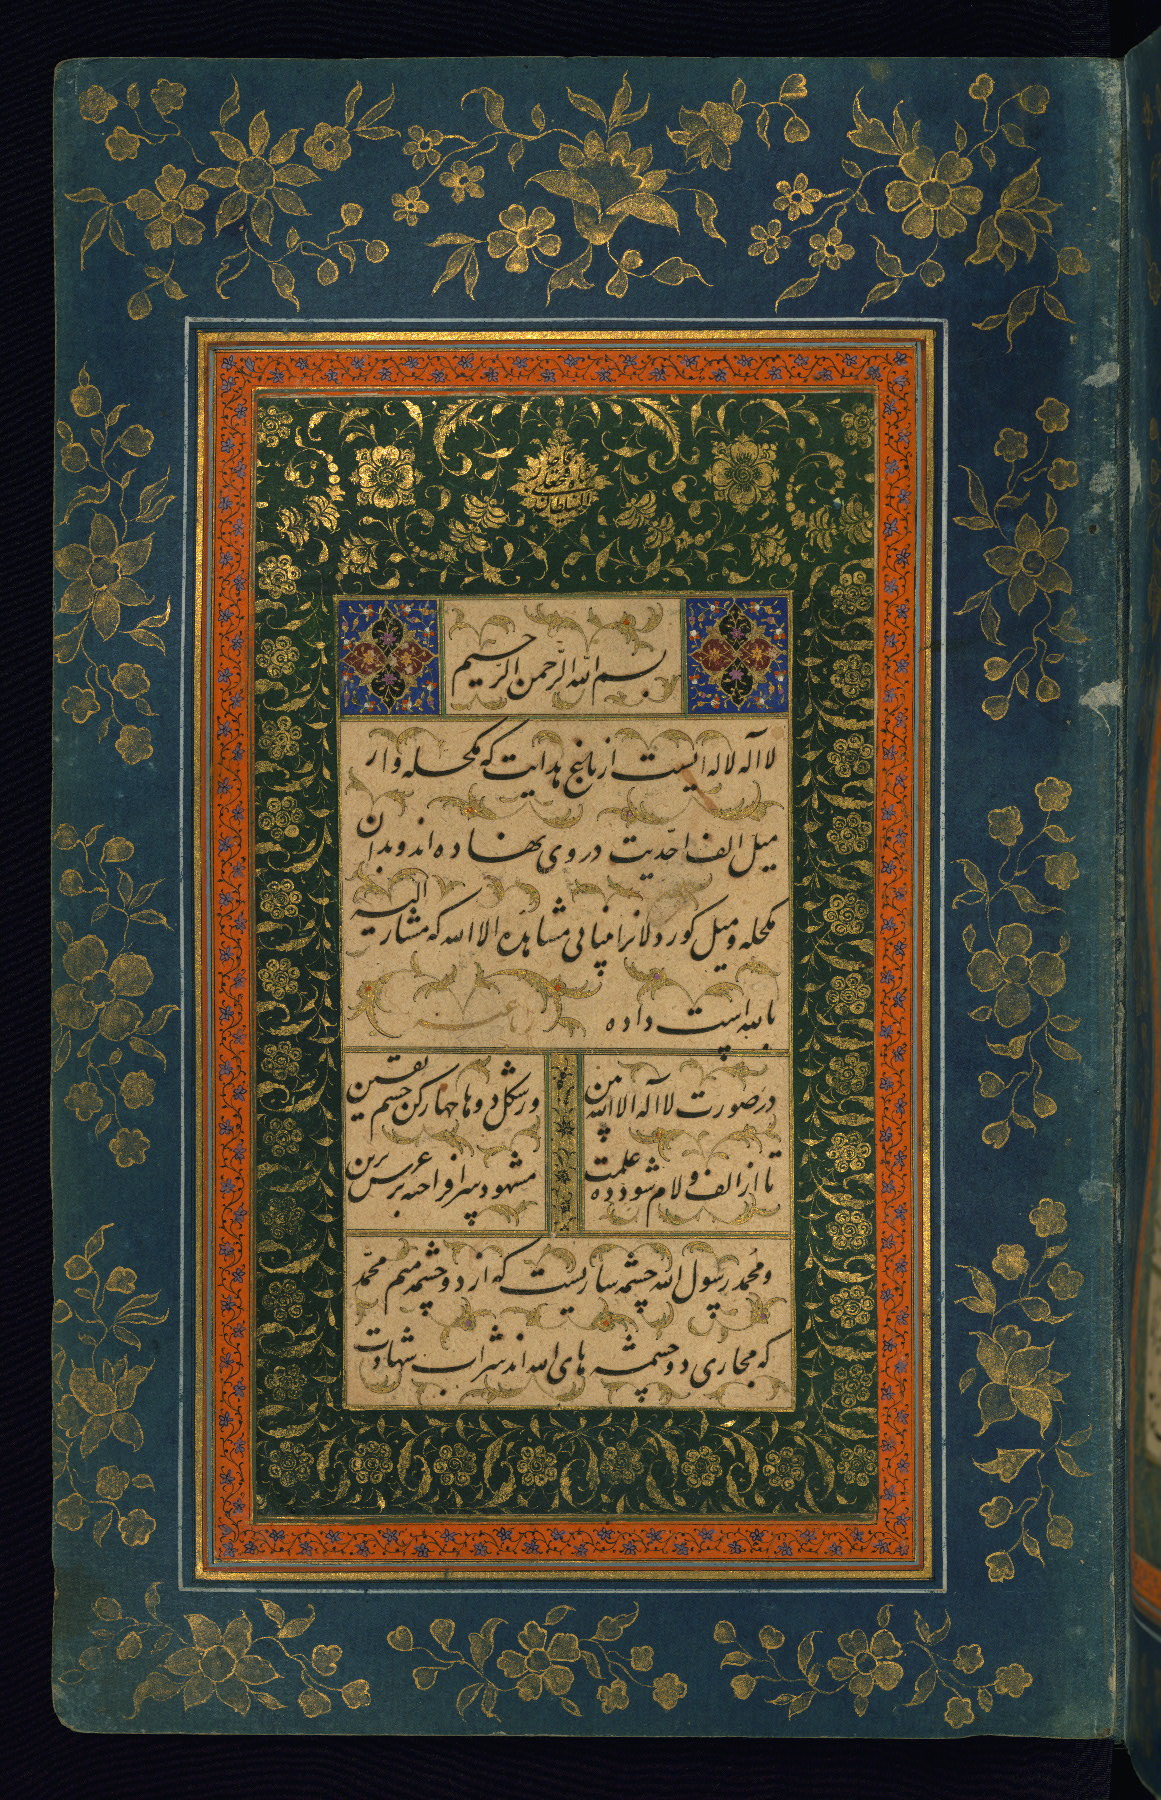 بسم الله الرحمن الرحیم
لا اله لاله ایست از باغ هدایت که مکحله وار
میل الف احدیت در وی نهاده اند و بدان
مکحله و میل کوردلانرا میانی مشاهدهٔ الا الله که مشار الیه
بالله است داده
در صورت لا اله الا الله من
ور شکل دو ها چهار کن چشم یقین
تا از الف و لام شود ده علمت
مشهود سرافراخته بر عرش برین
و محمد رسول الله چشمه ساریست که از دو چشمه میم محمد
که مجاری دو چشمه های الله اند شراب شهادت